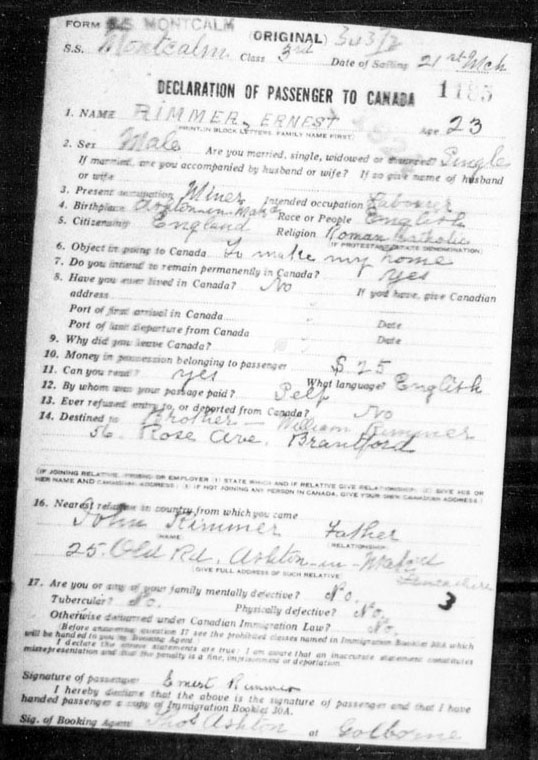 FORM S.S. MONTCALM (ORIGINAL) 3u3/2
S.S. Montcalm Class 3rd Date of Sailing 21st Mch
DECLARATION OF PASSENGER TO CANADA 1185
1. NAME RIMMER, ERNEST Age 23
(PRINT, IN BLOCK LETTERS, FAMILY NAME FIRST)
2. Sex Male Are you married, single, widowed or divorced? Single
If married, are you accompanied by husband or wife? If so give name of husband
or wife
3. Present occupation Miner Intended occupation Labourer
4. Birthplace Ashton-in-Mak Race or People English
5. Citizenship England Religion Roman Catholic
(IF PROTESTANT, STATE DENOMINATION)
6. Object in going to Canada To make my home
7. Do you intend to remain permanently in Canada? yes
8. Have you ever lived in Canada? No If you have, give Canadian
address
Port of first arrival in Canada Date
Port of last departure from Canada Date
9. Why did you leave Canada?
10. Money in possession belonging to passenger $25
11. Can you read? yes What language? English
12. By whom was your passage paid? Self
13. Ever refused entry to, or deported from Canada? No
14. Destined to Brother - William Rimmer
56. Rose Ave. Brantford
(IF JOINING RELATIVE, FRIEND OR EMPLOYER (1) STATE WHICH AND IF RELATIVE GIVE RELATIONSHIP: (2) GIVE HIS OR
HER NAME AND CANADIAN ADDRESS: (3) IF NOT JOINING ANY PERSON IN CANADA, GIVE YOUR OWN CANADIAN ADDRESS.)
16. Nearest relative in country from which you came
John Rimmer Father
(NAME) (RELATIONSHIP)
25. Old Rd. Ashton-in-
(GIVE FULL ADDRESS OF SUCH RELATIVE) Lancashire
17. Are you or any of your family mentally defective? No. 3
Tubercular? No. Physically defective? No.
Otherwise debarred under Canadian Immigration Law? No.
(Before answering question 17 see the prohibited classes named in Immigration Booklet 30A which
will be handed to you by Booking Agent.)
I declare the above statements are true: I am aware that an inaccurate statement constitutes
misrepresentation and that the penalty is a fine, imprisonment or deportation.
Signature of passenger Ernest Rimmer
I hereby declare that the above is the signature of passenger and that I have
handed passenger a copy of Immigration Booklet 30A.
Sig. of Booking Agent Thos Ashton at Golborne